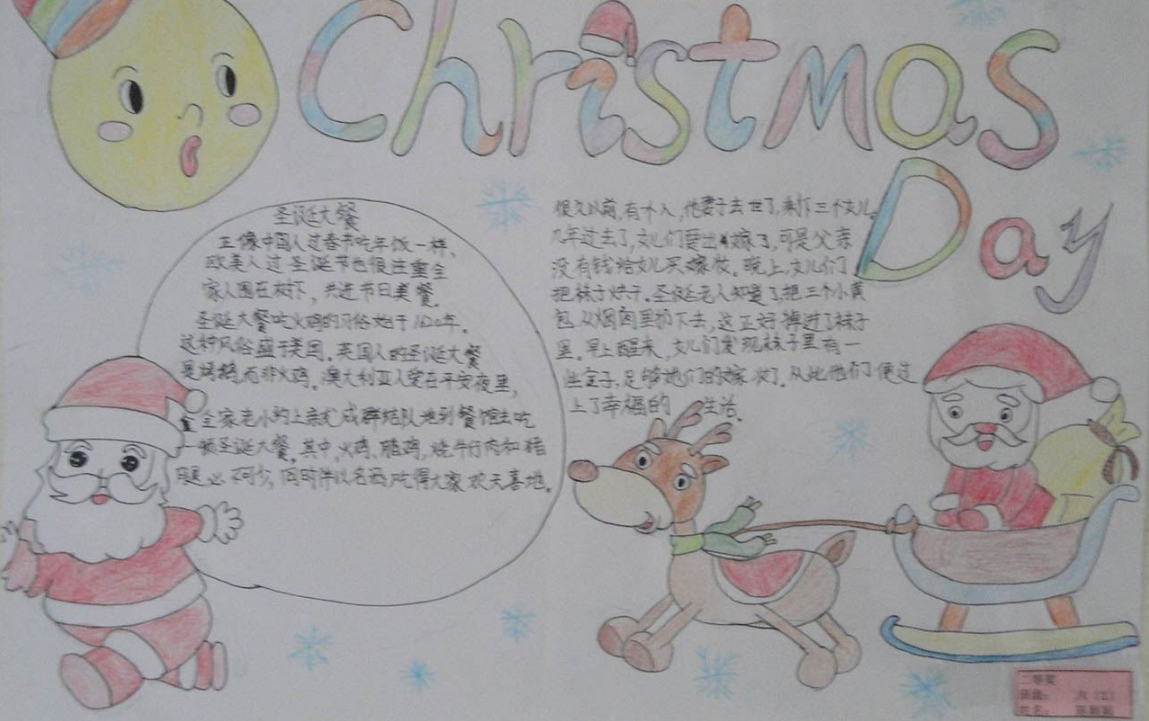 Christmas
Day
圣诞大餐
正像中国人过春节吃年饭一样、
欧美人过圣诞节也很注重全
家人围在树下，共进节日美餐。
圣诞大餐吃火鸡的习俗始于1620年。
这种风俗盛于美国。英国人的圣诞大餐
是烤鹅，而非火鸡。澳大利亚人爱在平安夜里，
全家老小约上亲友成群结队地到餐馆去吃
一顿圣诞大餐。其中，火鸡、腊鸡、烧牛仔肉和猪
腿必不可少，同时伴以名酒，吃得大家欢天喜地。
很久以前，有个人，他妻子去世了，剩下三个女儿。
几年过去了，女儿们要出嫁了，可是父亲
没有钱给女儿买嫁妆。晚上，女儿们
把袜子烘干。圣诞老人知道了，把三个小黄
包从烟囱里扔下去，这正好掉进了袜子
里。早上醒来，女儿们发现袜子里有一
些金子，足够她们的嫁妆了。从此他们便过
上了幸福的 生活。
二等奖
班级： 六（2）
姓名：